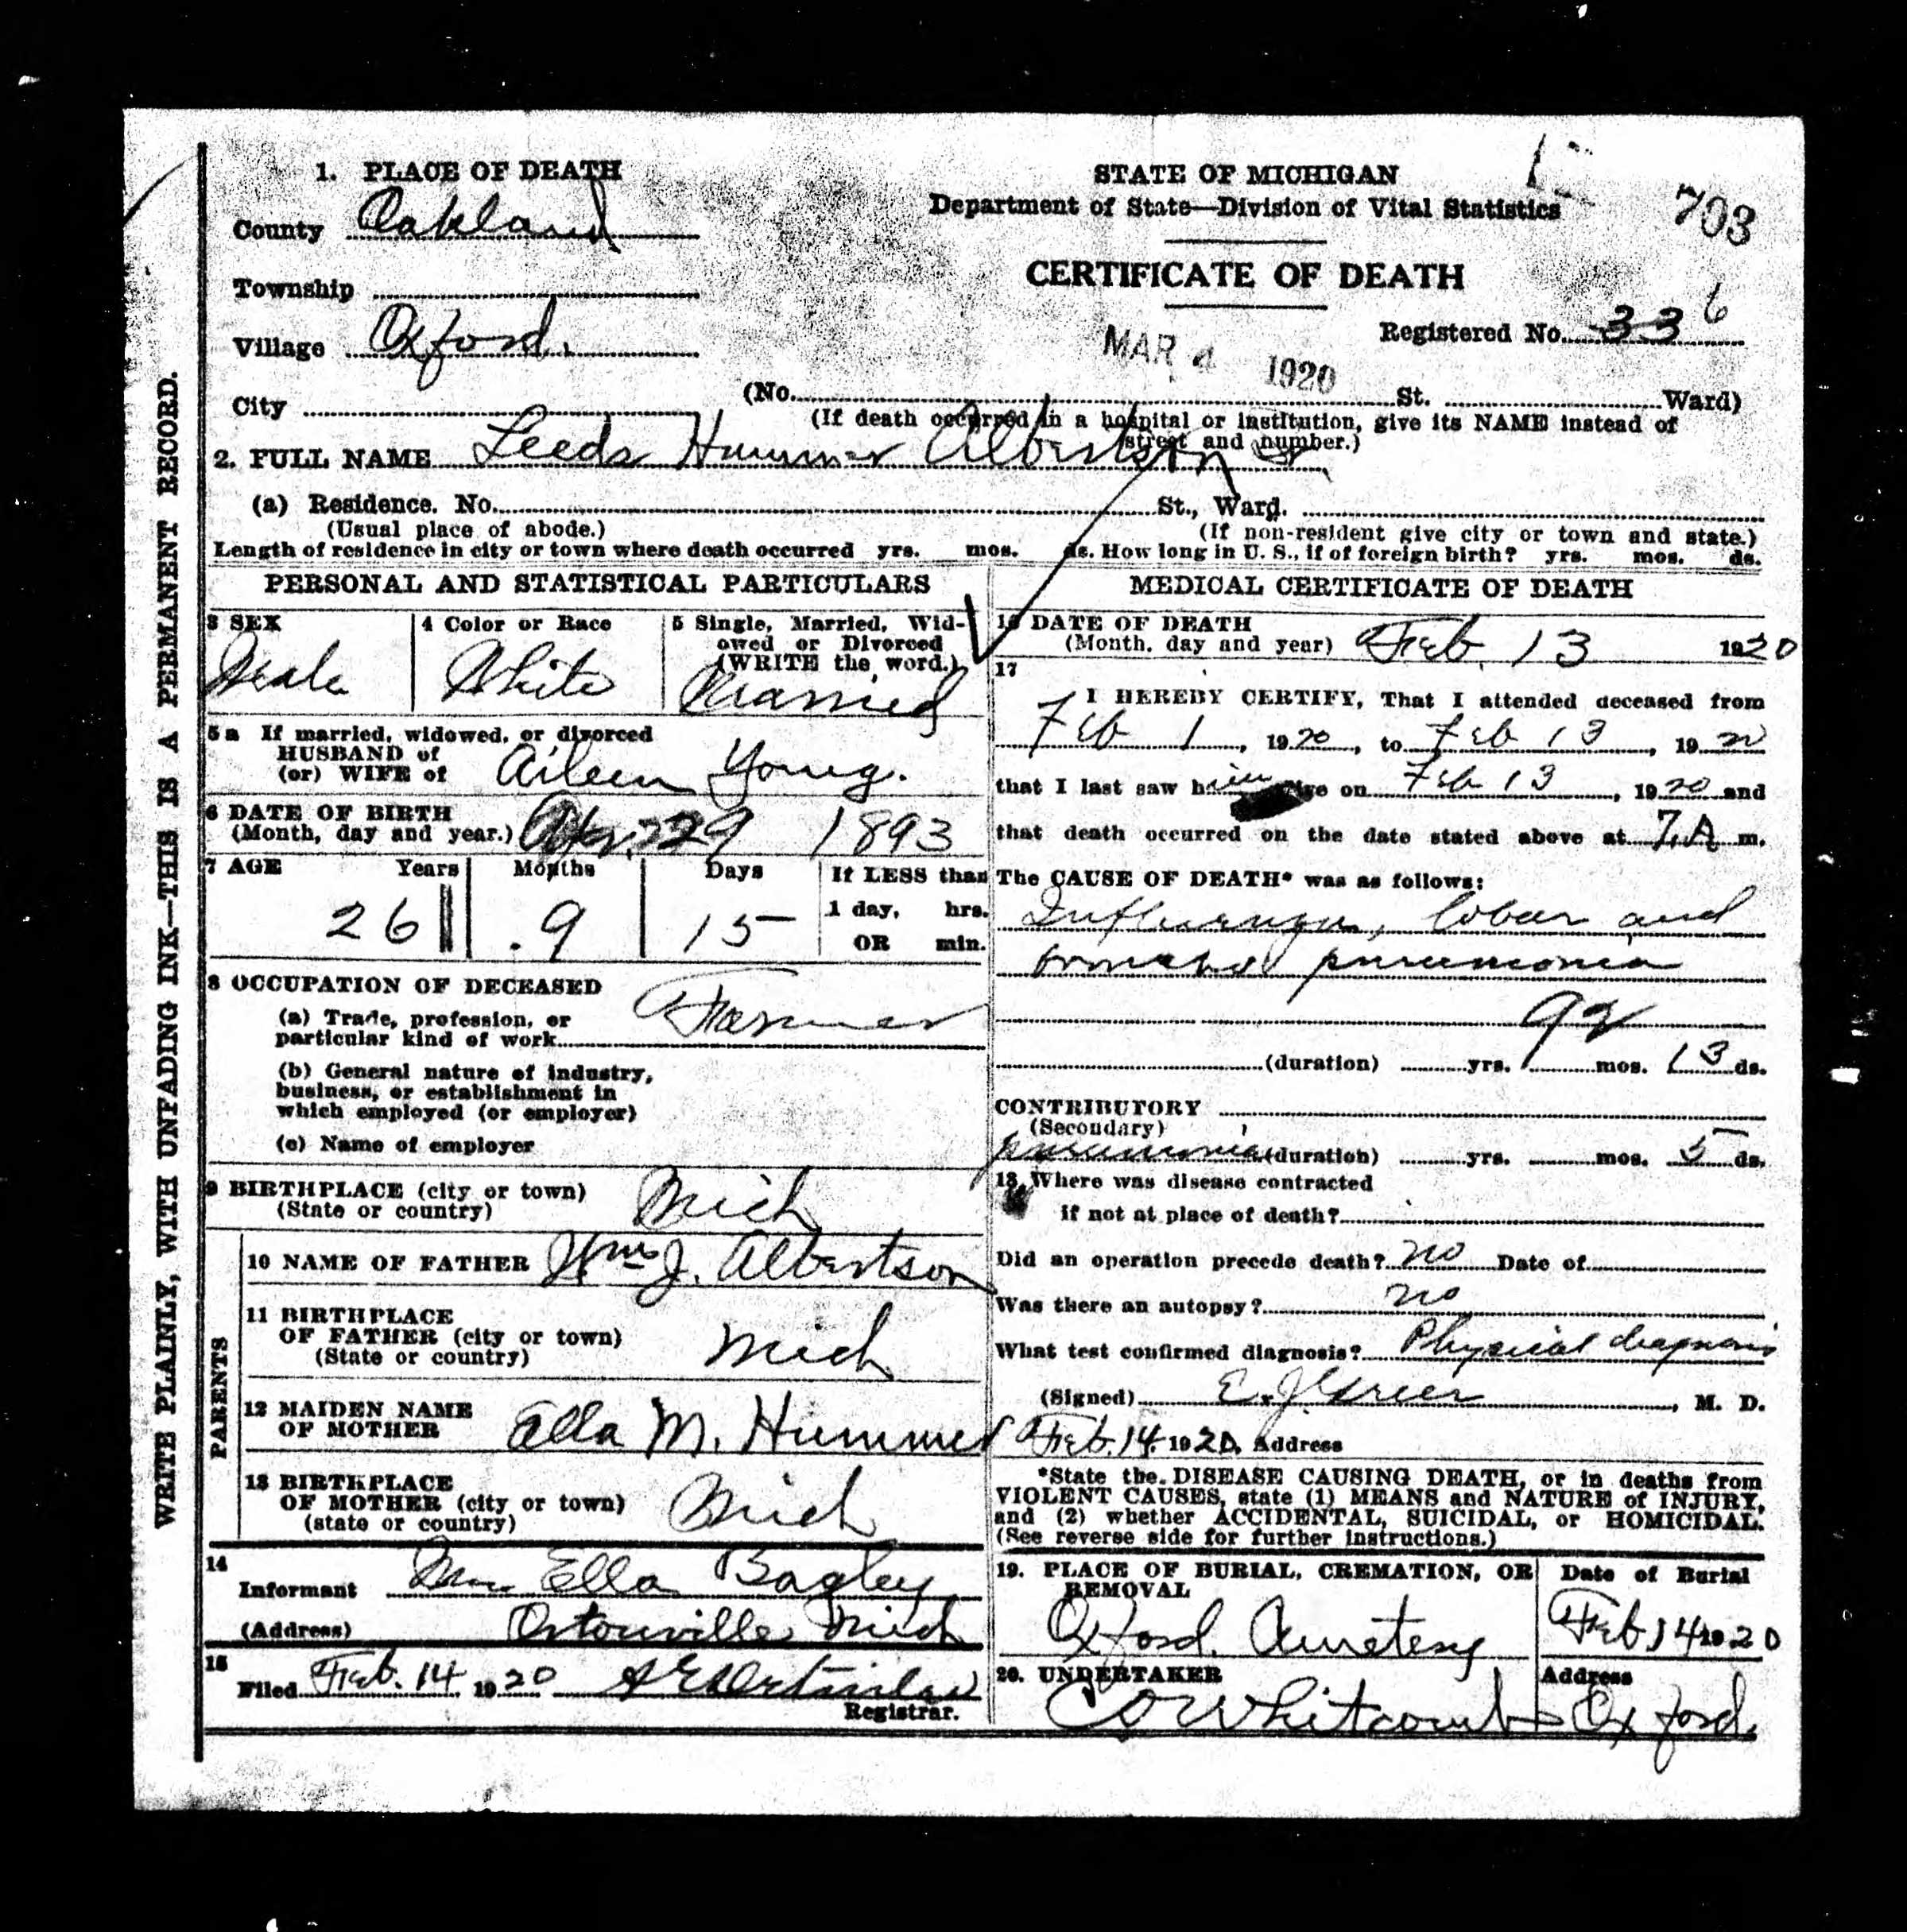 WRITE PLAINLY, WITH UNFADING INK—THIS IS A PERMANENT RECORD.
1. PLACE OF DEATH
County Oakland
Township
Village Oxford.
City
STATE OF MICHIGAN
Department of State—Division of Vital Statistics
703
CERTIFICATE OF DEATH
Registered No. 33 6
MAR 4 1920
(No. St. Ward)
(If death occurred in a hospital or institution, give its NAME instead of
street and number.)
2. FULL NAME Leeds Hummer Albertson
(a) Residence. No. St., Ward.
(Usual place of abode.) (If non-resident give city or town and state.)
Length of residence in city or town where death occurred yrs. mos. ds. How long in U. S., if of foreign birth? yrs. mos. ds.
PERSONAL AND STATISTICAL PARTICULARS
3 SEX
Male
4 Color or Race
White
5 Single, Married, Wid-
owed or Divorced
(WRITE the word.)
Married
5a If married, widowed, or divorced
HUSBAND of
(or) WIFE of Aileen Young.
6 DATE OF BIRTH
(Month, day and year.) 29 1893
7 AGE Years Months Days If LESS than
26 9 15 1 day, hrs.
OR min.
8 OCCUPATION OF DECEASED
(a) Trade, profession, or
particular kind of work Farmer
(b) General nature of industry,
business, or establishment in
which employed (or employer)
(c) Name of employer
9 BIRTHPLACE (city or town)
(State or country) Mich
PARENTS
10 NAME OF FATHER Wm J. Albertson
11 BIRTHPLACE
OF FATHER (city or town)
(State or country) Mich
12 MAIDEN NAME
OF MOTHER Ella M. Hummer
13 BIRTHPLACE
OF MOTHER (city or town)
(state or country) Mich
14
Informant Mrs Ella Bagley
(Address) Ortonville Mich
15
Filed Feb. 14 1920
Registrar.
MEDICAL CERTIFICATE OF DEATH
16 DATE OF DEATH
(Month, day and year) Feb. 13 1920
17
I HEREBY CERTIFY, That I attended deceased from
Feb 1, 1920, to Feb 13, 1920
that I last saw him alive on Feb 13, 1920 and
that death occurred on the date stated above at 7.A m.
The CAUSE OF DEATH* was as follows:
Influenza, lobar and
broncho pneumonia
92
(duration) yrs. mos. 13 ds.
CONTRIBUTORY
(Secondary)
pneumonia (duration) yrs. mos. 5 ds.
18 Where was disease contracted
if not at place of death?
Did an operation precede death? no Date of
Was there an autopsy? no
What test confirmed diagnosis? Physical diagnosis
(Signed) E. J. Greer, M. D.
Feb. 14. 1920, Address
*State the DISEASE CAUSING DEATH, or in deaths from
VIOLENT CAUSES, state (1) MEANS and NATURE of INJURY,
and (2) whether ACCIDENTAL, SUICIDAL, or HOMICIDAL.
(See reverse side for further instructions.)
19. PLACE OF BURIAL, CREMATION, OR
REMOVAL
Oxford. Cemetery
Date of Burial
Feb 14 1920
20. UNDERTAKER
C O Whitcomb
Address
Oxford.